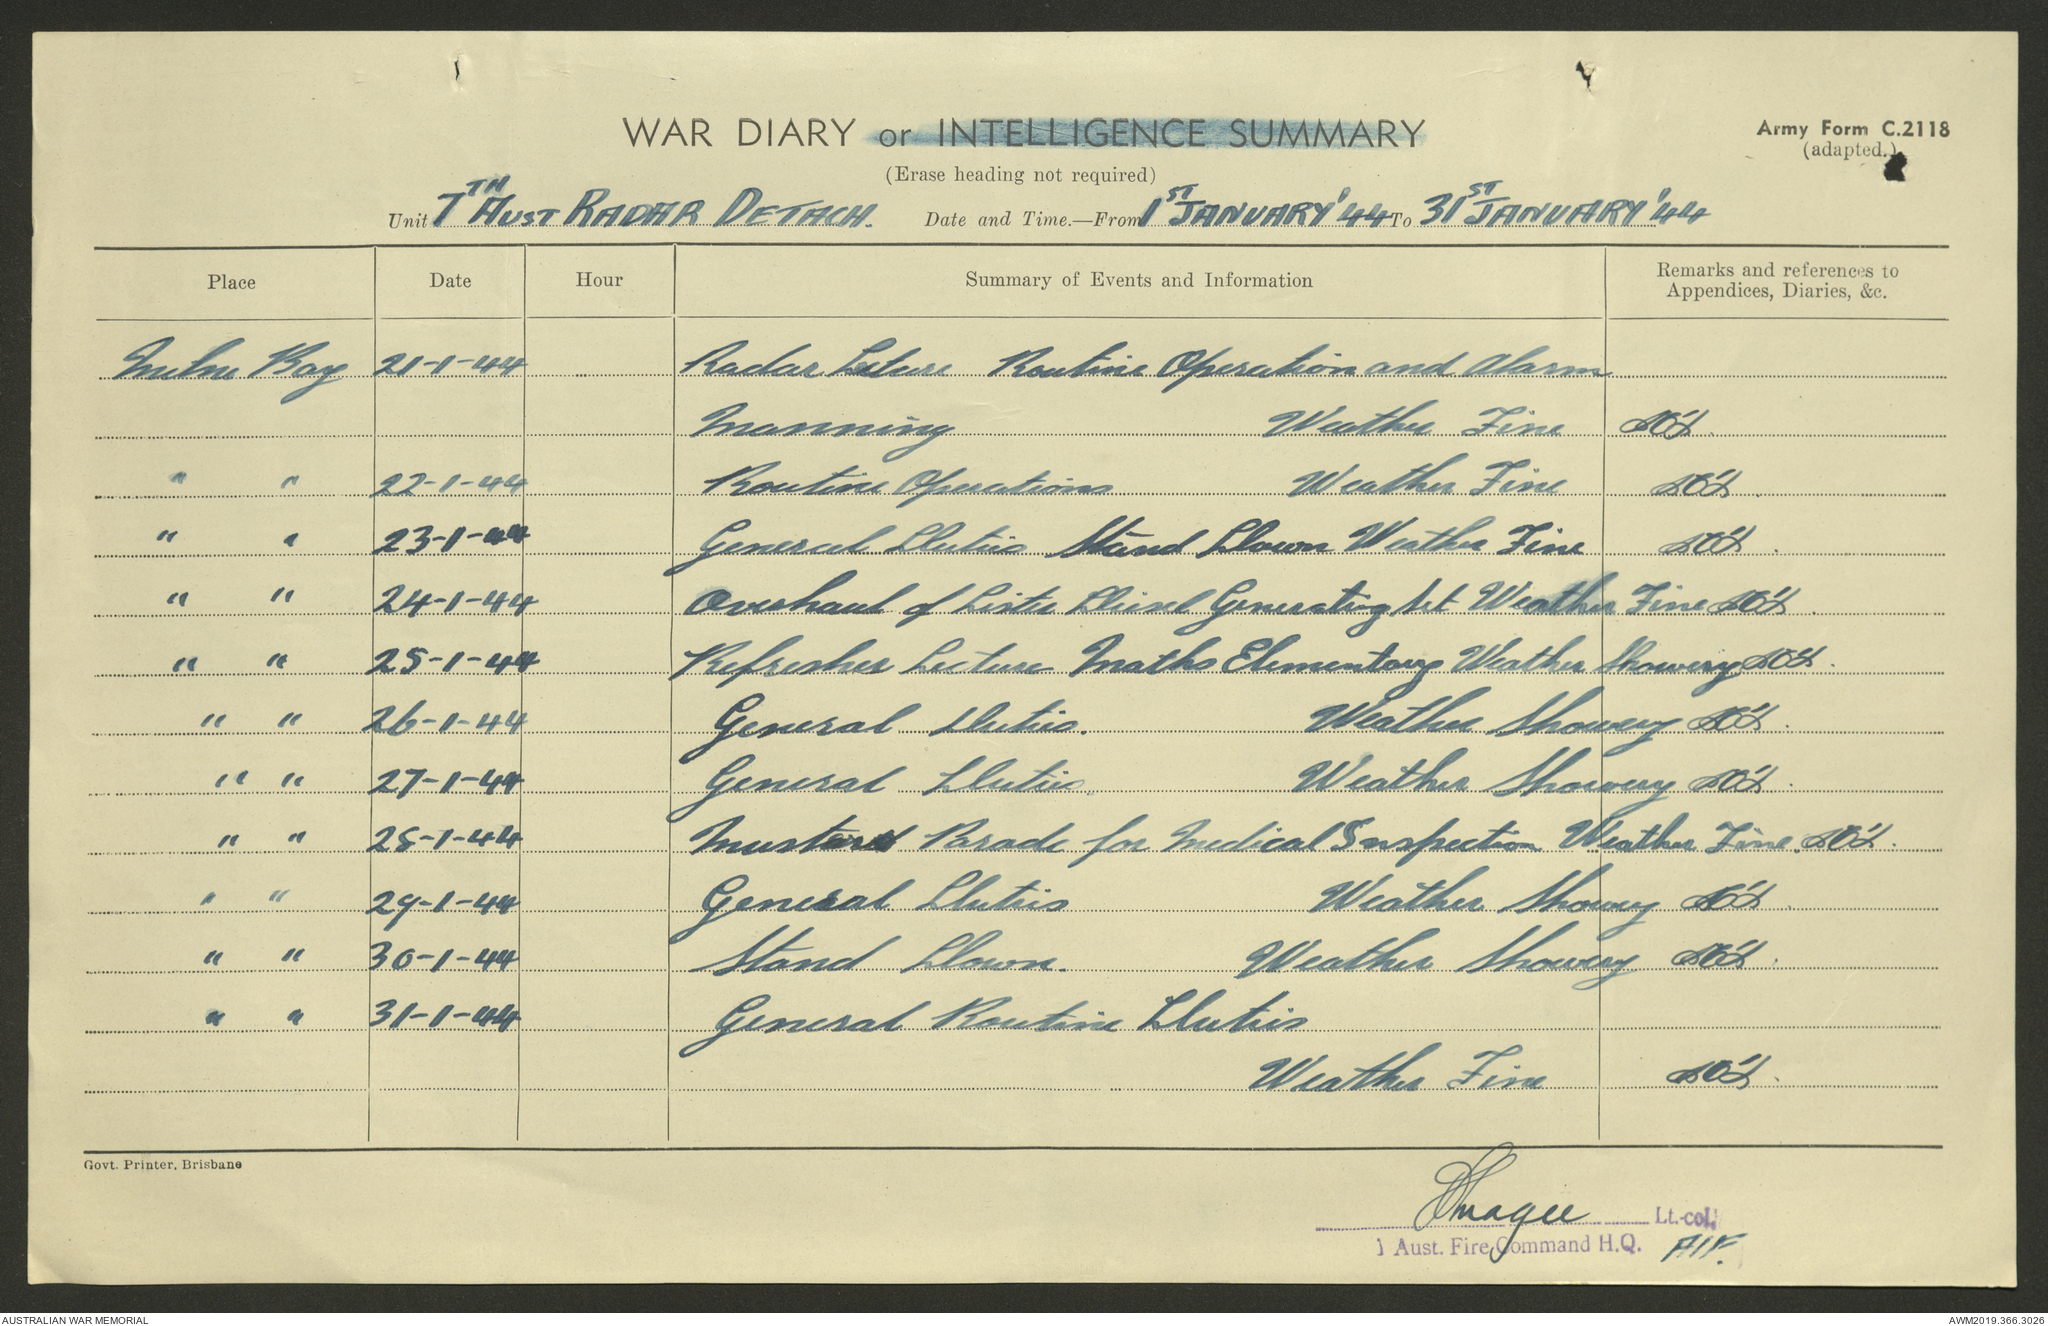 WAR DIARY or INTELLIGENCE SUMMARY
Army Form C.2118
(adapted.)
(Erase heading not required)
Unit 7TH AUST RADAR DETACH. Date and Time.—From 1ST JANUARY '44 To 31ST JANUARY '44
Place Date Hour Summary of Events and Information Remarks and references to Appendices, Diaries, &c.
Milne Bay 21-1-44 Radar Lecture Routine Operation and Alarm
Manning Weather Fine
" " 22-1-44 Routine Operations Weather Fine
" " 23-1-44 General Duties Stand Down Weather Fine
" " 24-1-44 Overhaul of Lister Diesel Generating Set Weather Fine
" " 25-1-44 Refresher Lecture Maths Elementary Weather Showery
" " 26-1-44 General Duties. Weather Showery
" " 27-1-44 General Duties. Weather Showery
" " 28-1-44 Muster Parade for Medical Inspection Weather Fine.
" " 29-1-44 General Duties Weather Showery
" " 30-1-44 Stand Down. Weather Showery
" " 31-1-44 General Routine Duties
Weather Fine
Govt. Printer, Brisbane
Magee Lt-col.
1 Aust. Fire Command H.Q. AIF.
AUSTRALIAN WAR MEMORIAL
AWM2019.366.3026